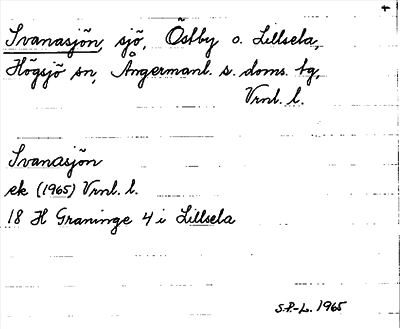 Svanasjön, sjö, Östby o. Lillsela,
Högsjö sn, Ångermanl. s. doms. tg,
Vrnl. l.
Svanasjön
ek (1965) Vrnl. l.
18 H Graninge 4 i Lillsela
S.P.-L. 1965